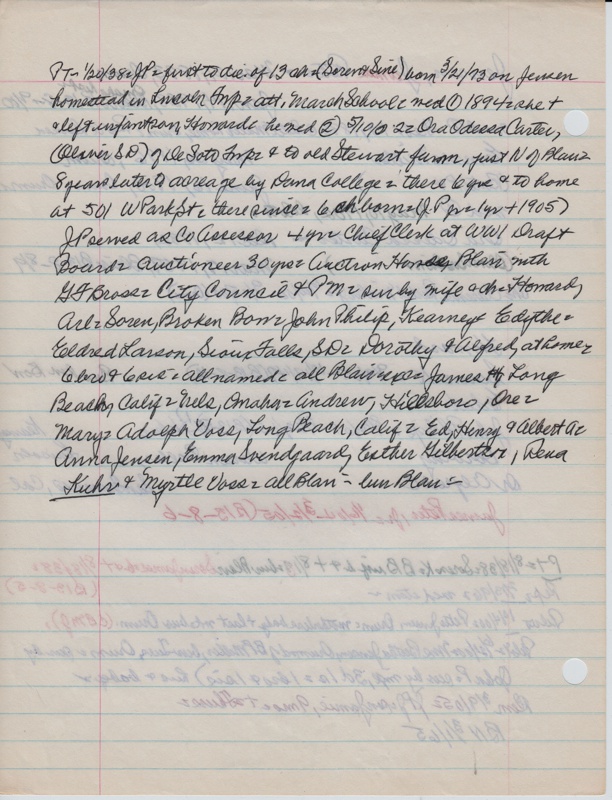 PT - 1/20/38 = JP = first to die of 13 ch = (Soren & Sine) born 3/21/73 on Jensen
homestead in Lincoln Tnp = att. March School = med ① 1894 = she +
& left infant son, Howard = he med ② 5/10/02 = Ora Odessa Carter,
(Oliver SD) of DeSoto Tnp = & to old Stewart farm, just N of Blair =
8 years later to acreage by Dana College = there 6 yrs & to home
at 501 W Park St = there since = 6 ch born = (J.P. jr = 1 yr + 1905)
JP served as Co Assessor 4 yr = Chief Clerk at WWI Draft
Board = Auctioneer 30 yrs = Auction House, Blair with
GF Bros = City Council & PM = sur by wife & ch = Howard,
Arl = Soren, Broken Bow = John Philip, Kearney & Edythe =
Eldred Larson, Sioux Falls, SD = Dorothy & Alfred, at home =
6 bro & 6 sis = all named = all Blair exc = James H, Long
Beach, Calif = Nels, Omaha = Andrew, Hillsboro, Ore =
Mary = Adolph Voss, Long Beach, Calif = Ed, Henry & Albert
Anna Jensen, Emma Svendgaard, Esther Gilbertson, Rena
Kuhr & Myrtle Voss = all Blair = bur Blair =